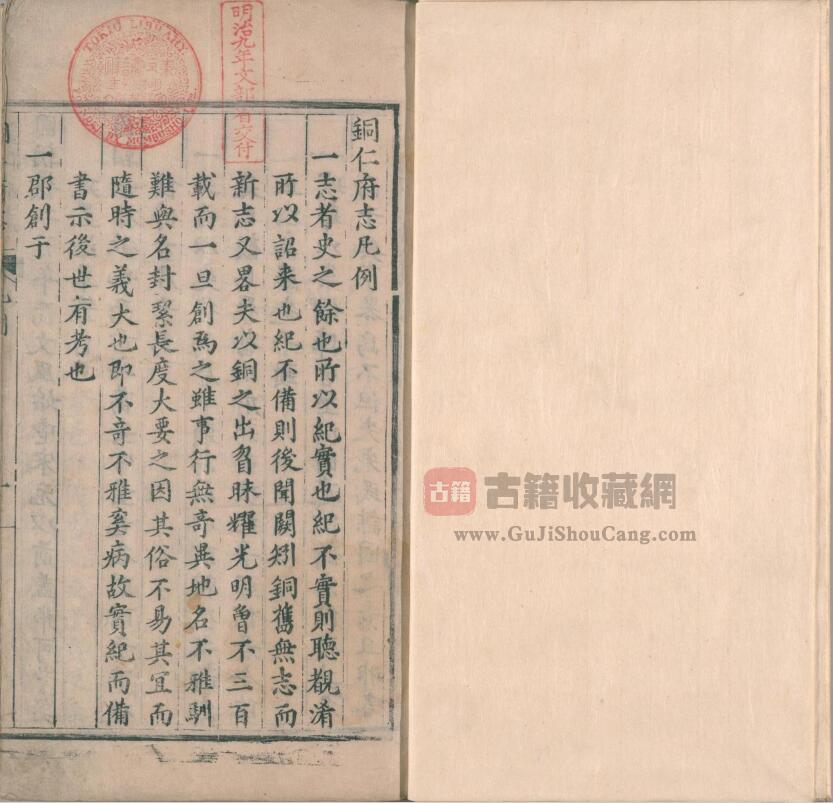 銅仁府志凡例
一志者史之餘也所以紀實也紀不實則聽覩淆
所以詔来也紀不備則後聞闕矧銅舊無志而
新志又畧夫以銅之出昏昧耀光明曾不三百
載而一旦創為之雖事行無竒異地名不雅馴
難與名封繄長度大要之因其俗不易其宜而
隨時之義大也即不竒不雅奚病故實紀而備
書示後世有考也
一郡創于
明治九年文部省交付
TOKIO LIBRARY
古籍
古籍收藏網
www.GuJiShouCang.com